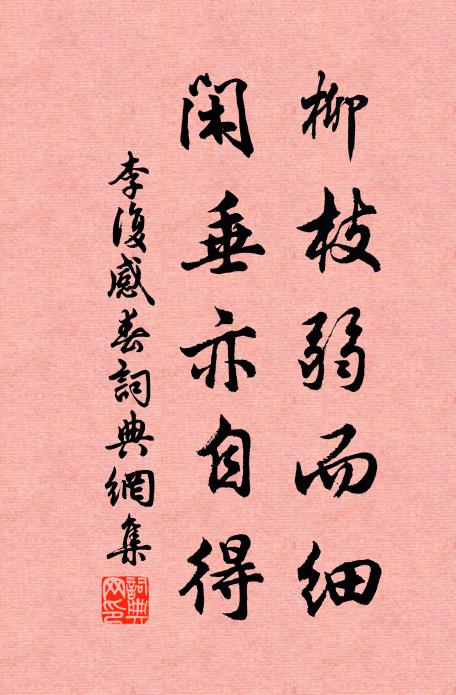 柳枝弱而細
閑垂亦自得
李復感春詞典網集
詞典网印